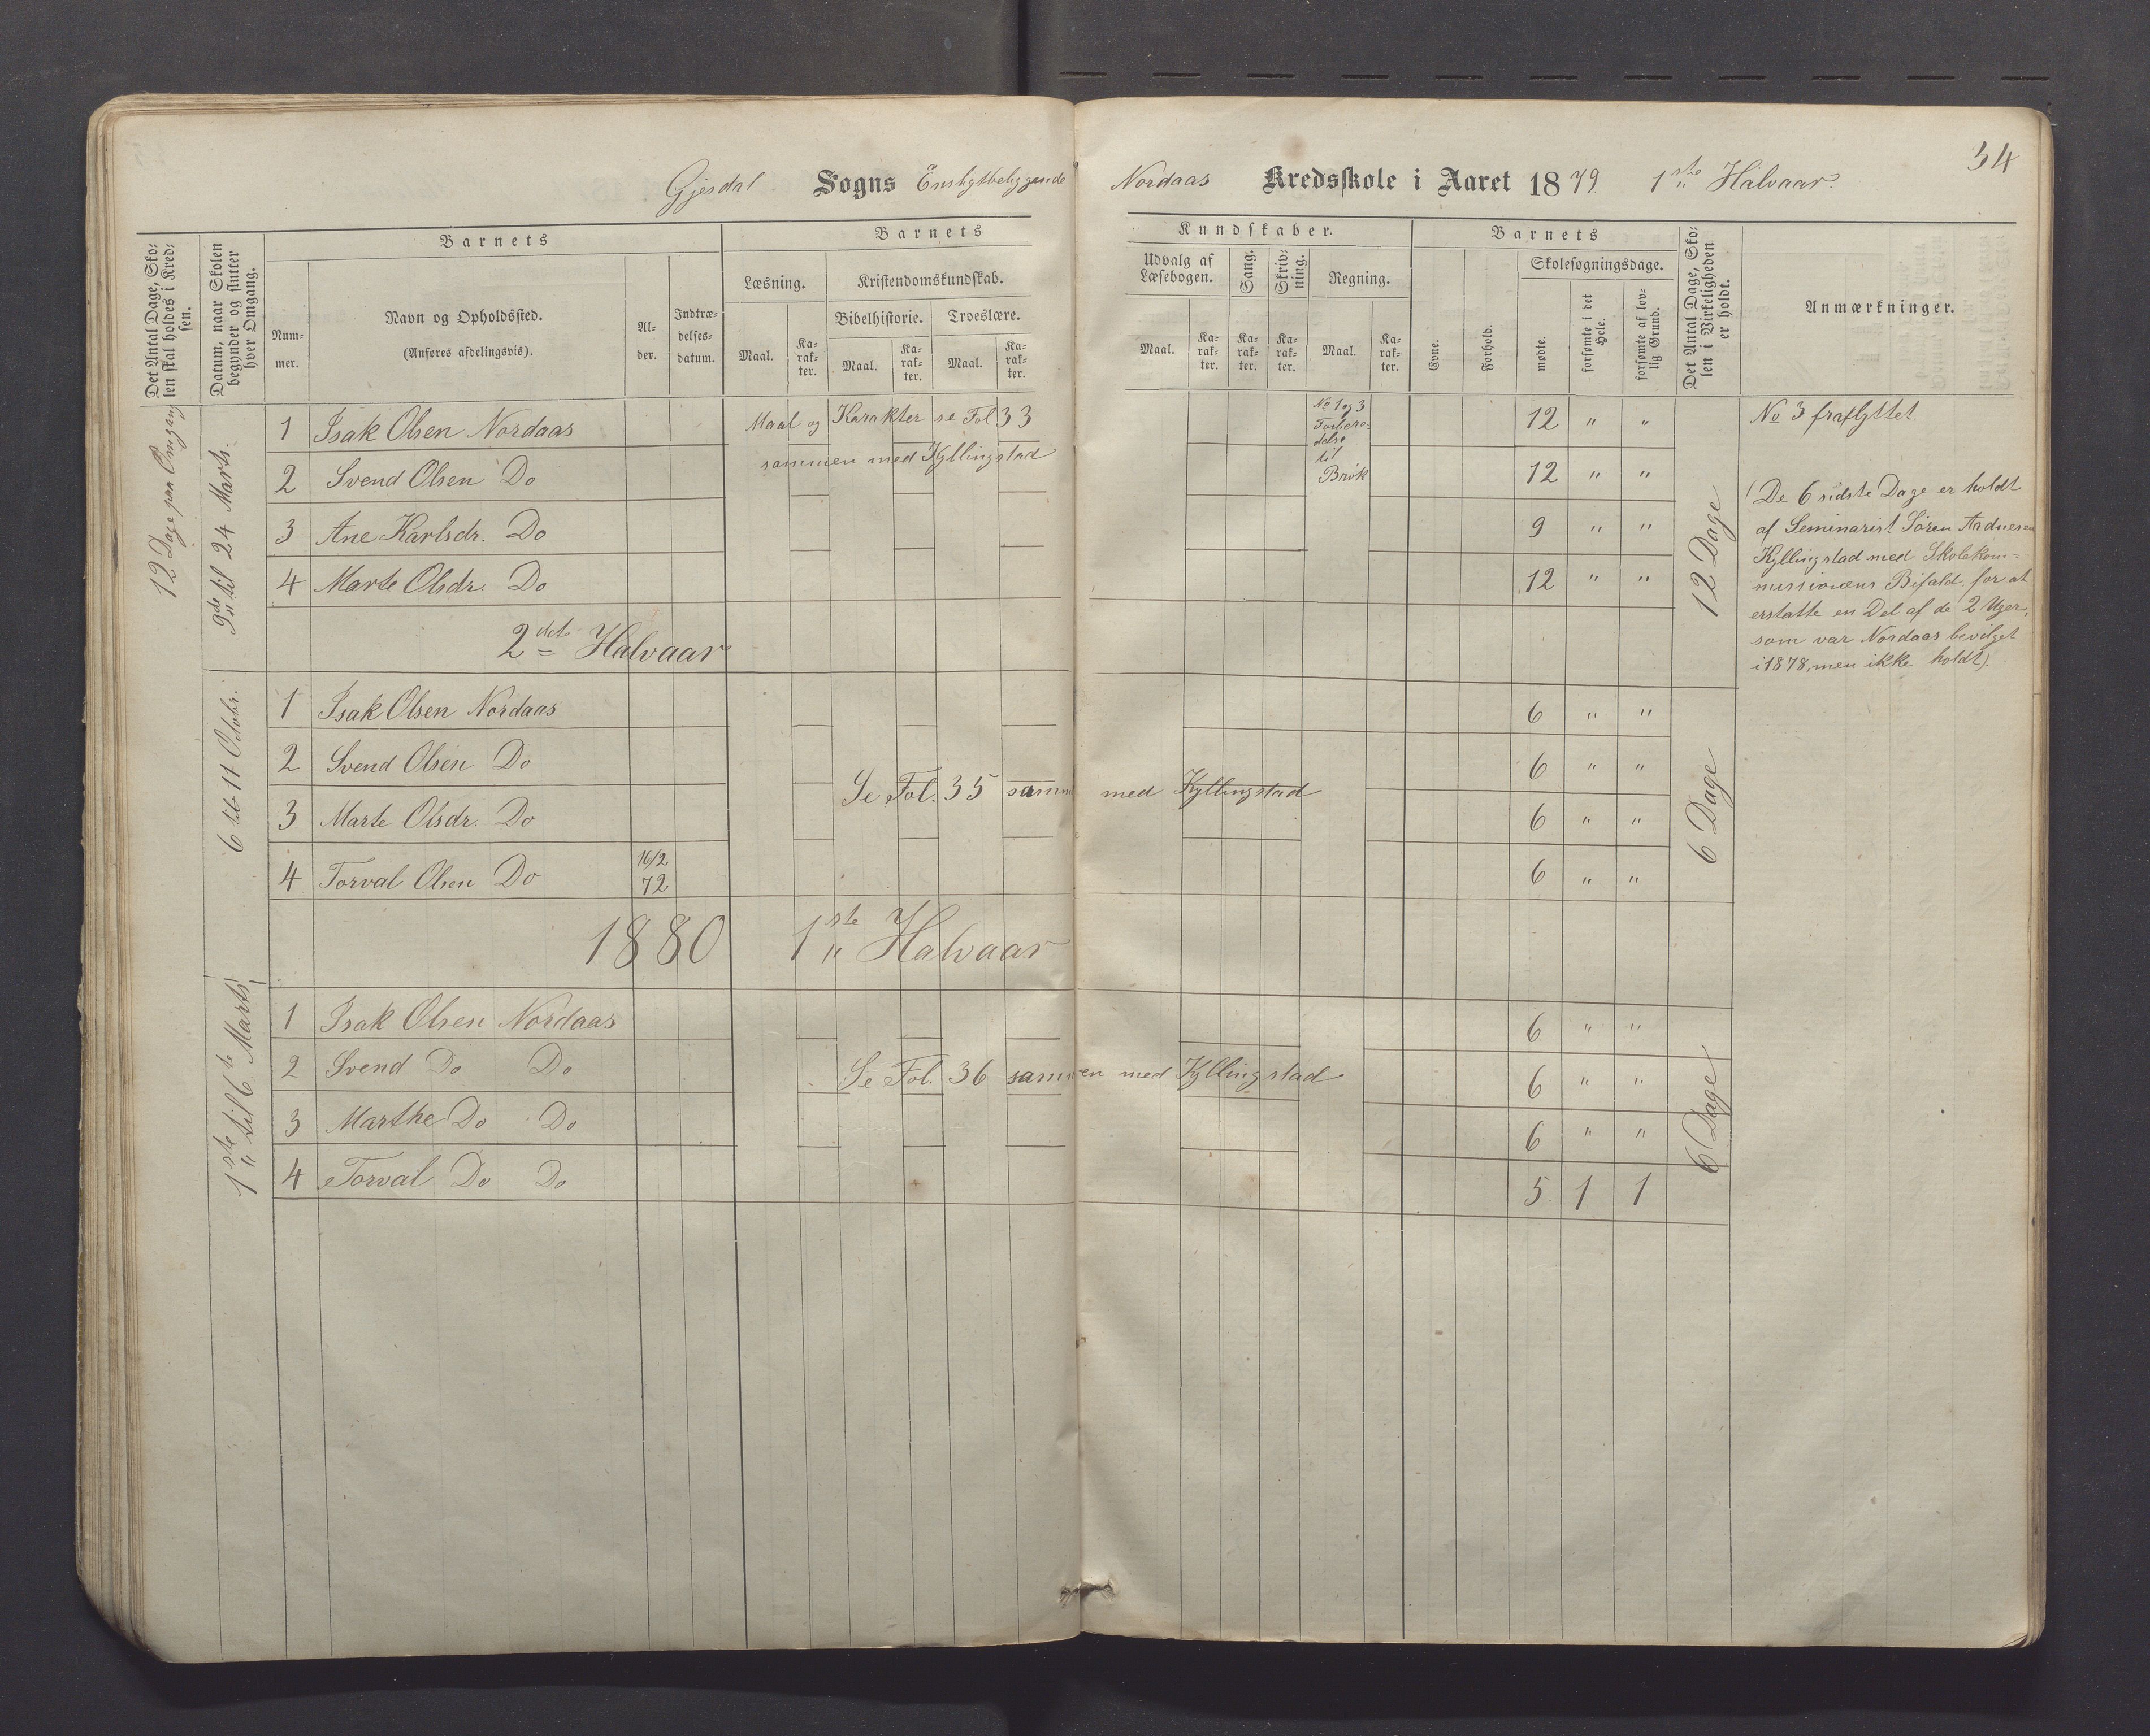 34
Gjesdal Sogns Ensligtbeliggende Nordaas Kredsskole i Aaret 1879. 1ste Halvaar.
Det Antal Dage, Skolen skal holdes i Kredsen.
Datum, naar Skolen begynder og slutter hver Omgang.
Barnets
Nummer.
Navn og Opholdssted.
(Anføres afdelingsvis).
Alder.
Indtrædelsesdatum.
Barnets Kundskaber.
Læsning.
Maal.
Karakter.
Kristendomskundskab.
Bibelhistorie.
Maal.
Karakter.
Troeslære.
Maal.
Karakter.
Udvalg af Læsebogen.
Maal.
Karakter.
Sang.
Karakter.
Skrivning.
Karakter.
Regning.
Maal.
Karakter.
Barnets
Evne.
Forhold.
Skolesøgningsdage.
mødte.
forsømte i det Hele.
forsømte af lovlig Grund.
Det Antal Dage, Skolen i Virkeligheden er holdt.
Anmærkninger.
12 Dage paa Omgang
9de til 24 Marts.
1 Isak Olsen Nordaas Maal og Karakter se Fol 33 12 " "
2 Svend Olsen Do sammen med Kyllingstad 12 " "
3 Ane Karlsdr. Do 9 " "
4 Marte Olsdr. Do 12 " "
No 1 og 3
Forbere-
delse
til
Brøk
12 Dage
No 3 fraflyttet
(De 6 sidste Dage er holdt
af Seminarist Søren Aadnesen
Kyllingstad med Skolekom-
missionens Bifald, for at
erstatte en Del af de 2 Uger,
som var Nordaas bevilget
i 1878, men ikke holdt).
2det Halvaar
6 til 11 Octobr.
1 Isak Olsen Nordaas 6 " "
2 Svend Olsen Do 6 " "
Se Fol. 35 sammen med Kyllingstad
3 Marte Olsdr. Do 6 " "
4 Torval Olsen Do 16/2 72 6 " "
6 Dage
1880 1ste Halvaar
1ste til 6te Marts
1 Isak Olsen Nordaas 6 " "
2 Svend Do Do Se Fol. 36 sammen med Kyllingstad 6 " "
3 Marthe Do Do 6 " "
4 Torval Do Do 5 1 1
6 Dage